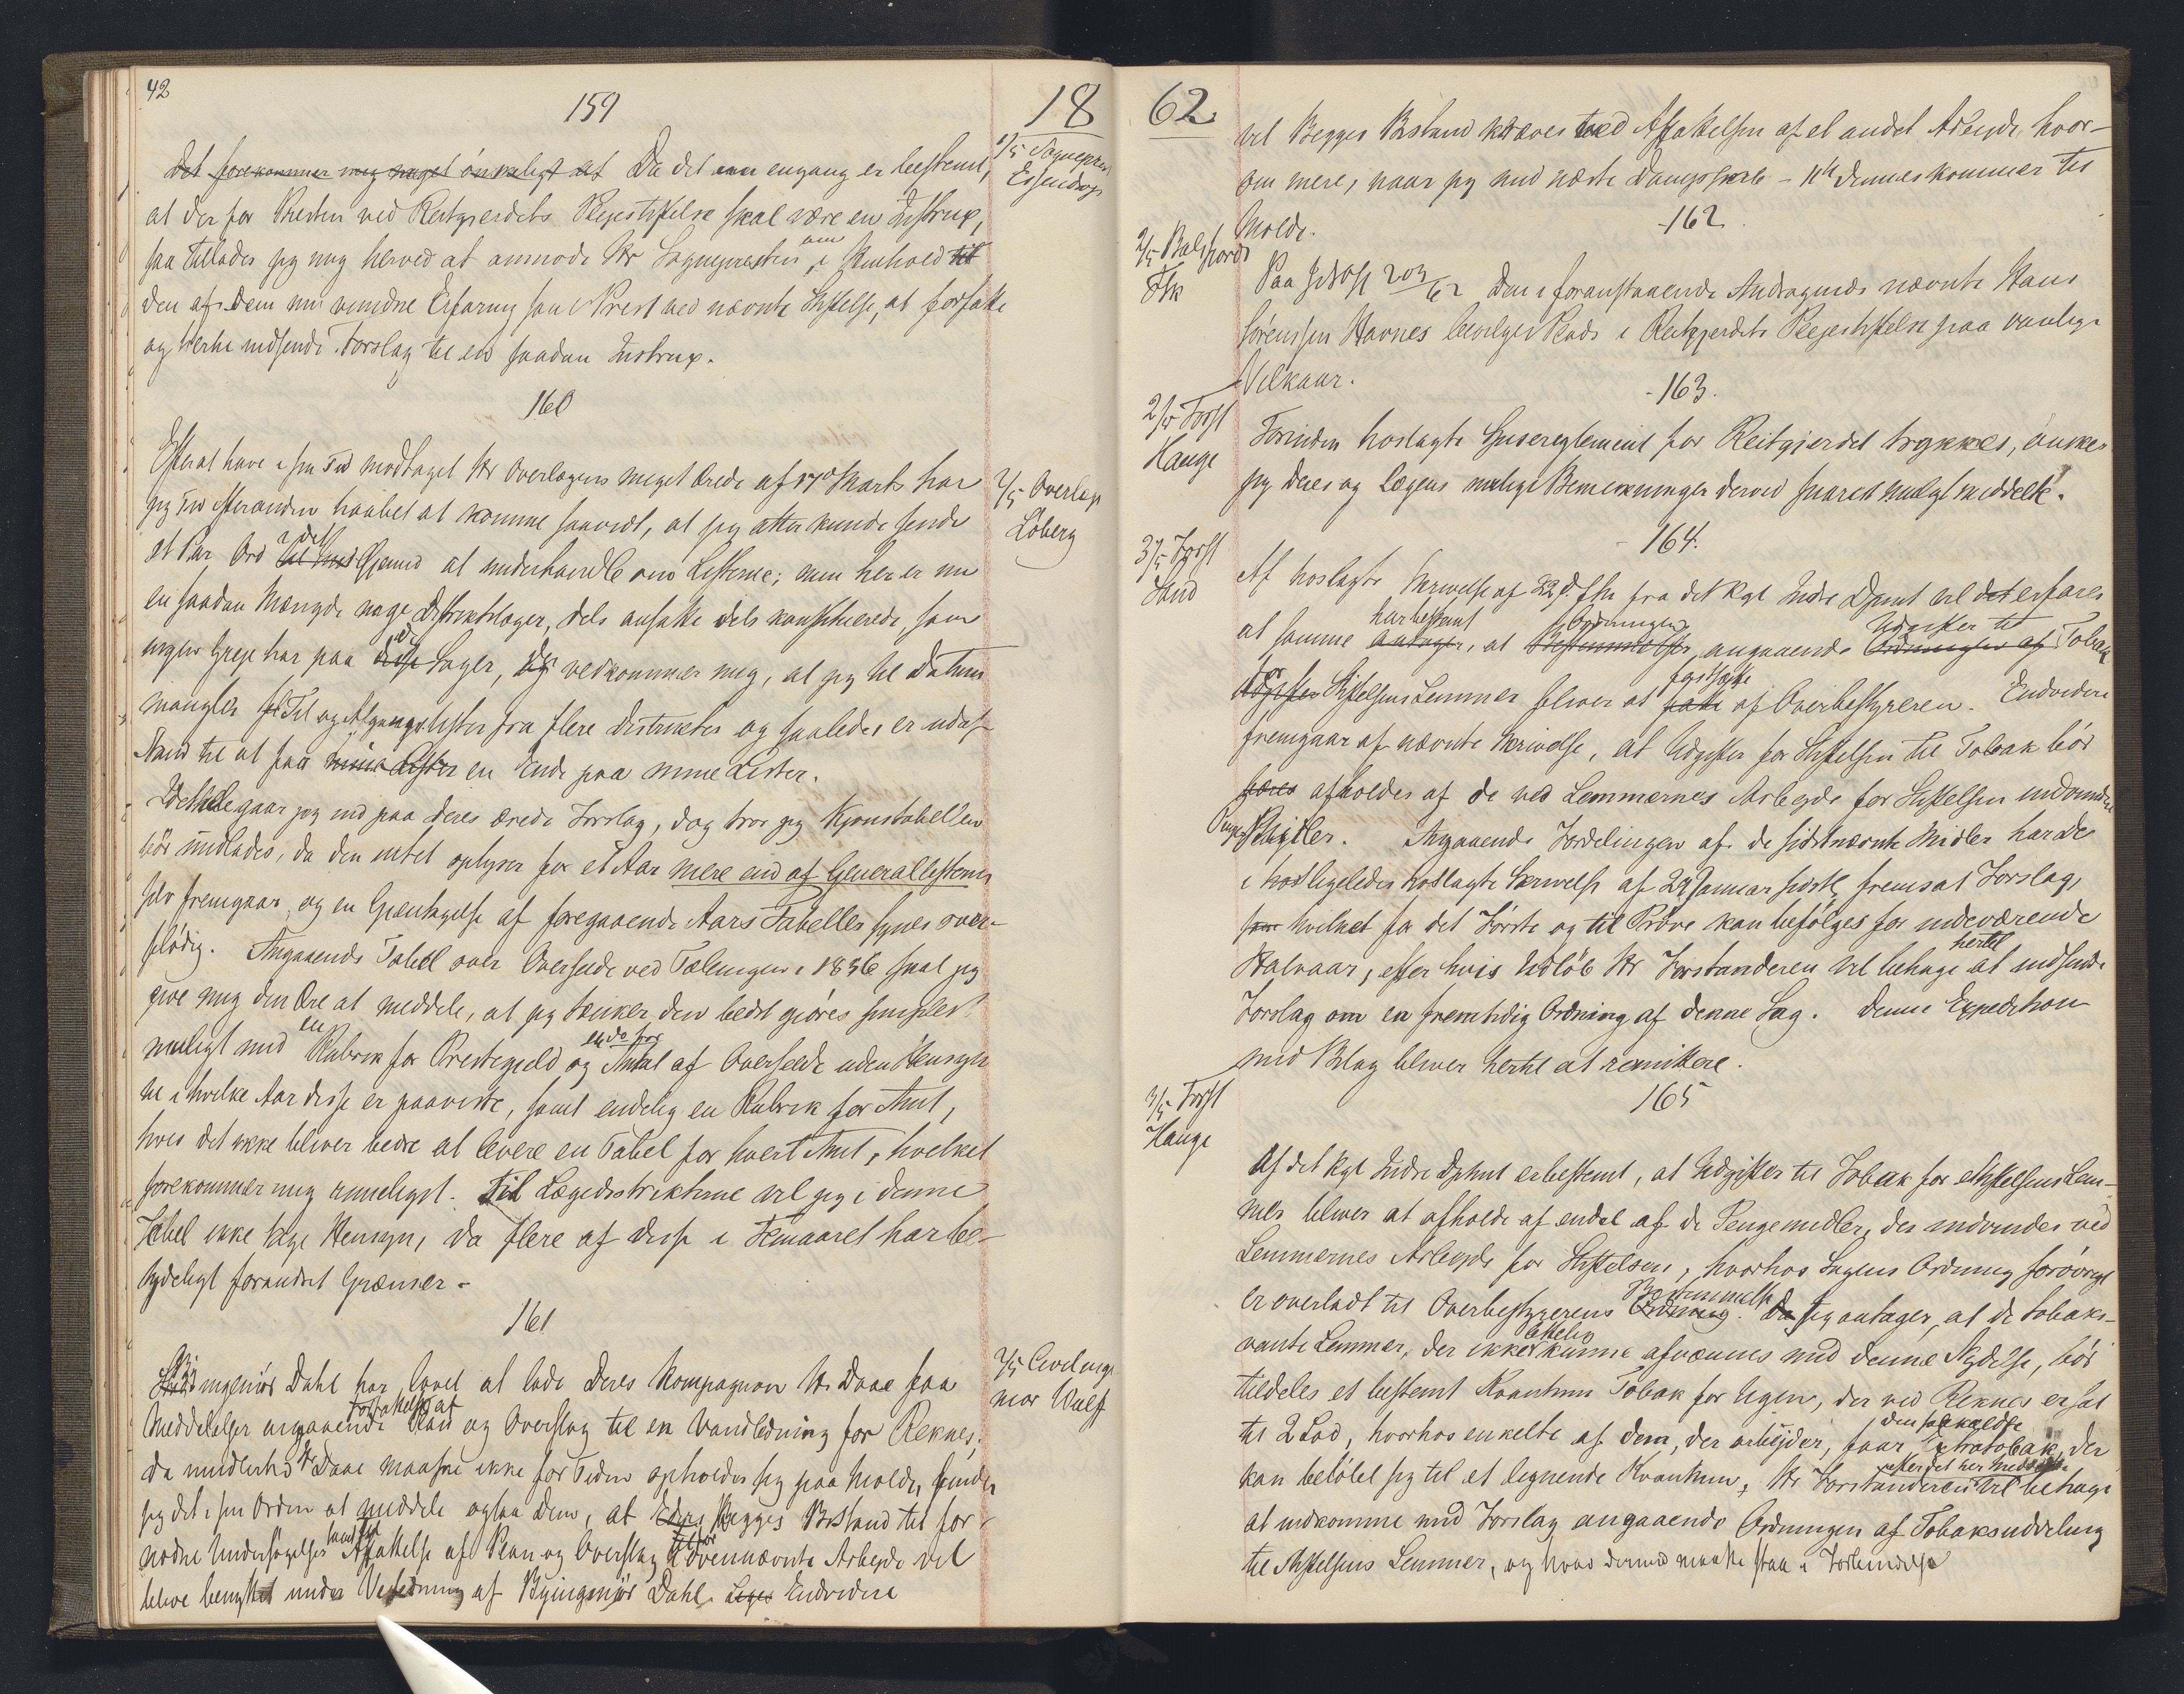 42
159
18
1/5 Sogneprest
Essendrop
Det forekommer mig meget ønskeligt at Da det engang er bestemt,
at der for Presten ved Reitgjerdets Plejestiftelse skal være en Instrux,
saa tillader jeg mig herved at anmode Hr Sognepresten om, i Henhold til
den af Dem nu vundne Erfaring som Prest ved nævnte Stiftelse, at forfatte
og hertil indsende Forslag til en saadan Instrux.
160
2/5 Overlæge
Løberg
Efterat have i sin Tid modtaget Hr Overlægens meget ærede af 17de Marts har
jeg Tid efter anden haabet at komme saavidt, at jeg atter kunde sende
et Par Ord i det Øiemed at underhandle om Listerne; men her er nu
en saadan Mængde nage Distriktslæger, dels ansatte dels konstituerede, som
ingen Greje har paa de Sager, der vedkommer mig, at jeg til Datum
mangler Til og Afgangslister fra flere Distrikter og saaledes er udaf
Stand til at faa mine Lister en Ende paa mine Lister.
Idethele gaar jeg ind paa Deres ærede Forslag, dog tror jeg Kjønstabellen
bør undlades, da den intet oplyser for et Aar mere end af Generallisterne
selv fremgaar, og en Gjentagelse af foregaaende Aars Tabeller synes over-
flødig. Angaaende Tabel over Oversede ved Tællingen i 1856 skal jeg
give mig den Ære at meddele, at jeg tænker den bedst gjøres simplest
muligt med en Rubrik for Prestegjeld og en do for Antal af Oversede uden Hensyn
til i hvilke Aar disse er paaviste, samt endelig en Rubrik for Amt,
hvis det ikke bliver bedre at levere en Tabel for hvert Amt, hvilket
forekommer mig rimeligst. Til Lægedistrikterne vil jeg i denne
Tabel ikke tage Hensyn, da flere af disse i Femaaret har be-
tydeligt forandret Grænser.
161
2/5 Civilinge
niør Wulff
Byingeniør Dahl har lovet at lade Deres Kompagnon Hr Daae faa
Meddelelser angaaende Forfattelse af Plan og Overslag til en Vandledning for Reknes.
Da imidlertid Hr Daae maaske ikke for Tiden opholder sig paa Molde, finder
jeg det i sin Orden at meddele ogsaa Dem, at Eders Begges Bistand til for
nødne Undersøgelser samt til Affattelse af Plan og Overslag til for ovennævnte Arbejde vil
blive benyttet under Veiledning af Byingeniør Dahl. Endvidere
62
vil Begges Bistand kræves ved Affattelsen af et andet Arbeide, hvor-
om mere, naar jeg med næste Dampskib - 11te dennes kommer til
Molde.
162
2/5 Balsfjords
Ftk
Paa JdNo 203/62 Den i foranstaaende Andragende nævnte Hans
Sørenssen Havnes bevilges Plads i Reitgjerdets Plejestiftelse paa vanlige
Vilkaar.
163.
2/5 Forst
Hauge
Forinden hoslagte Husreglement for Reitgjerdet trykkes, ønskes
jeg Deres og Lægens mulige Bemerkninger derved snarest muligt meddelt.
164.
3/5 Forst
Sand
Af hoslagte Skrivelse af 22 d. f. M. fra det Kgl Indre Dpmt vil det erfares
at samme har bestemt antager, at Ordningen Bestemmelser angaaende Udgifter til Ordningen af Tobak
for Udgifter Stiftelsens Lemmer bliver at fastsætte fatte af Overbestyreren. Endvidere
fremgaar af nævnte Skrivelse, at Udgifter for Stiftelsen til Tobak bør
bæres afholdes af de ved Lemmernes Arbeyde for Stiftelsen indvundne
Penge Midler. Angaaende Fordelingen af de sidstnævnte Midler har De
i hos ligeledes hoslagte Skrivelse af 29 Januar sidstl. fremsat Forslag,
som hvilket for det Første og til Prøve kan befølges for indeværende
Halvaar, efter hvis Udløb Hr Forstanderen vil behage hertil at indsende
Forslag om en fremtidig Ordning af denne Sag. Denne Expedition
med Bilag bliver hertil at remittere.
165
3/5 Forst
Hauge
Af det Kgl Indre Dpmt er bestemt, at Udgifter til Tobak for Stiftelsens Lem-
mer bliver at afholde af endel af de Pengemidler, der indvindes ved
Lemmernes Arbeyde for Stiftelsen, hvorhos Sagens Ordning forøvrigt
er overladt til Overbestyrerens Bestemmelse Ordning. Da Jeg antager, at de tobaks-
vante Lemmer, der ikke letteligen kunne afvænnes med denne Nydelse, bør
tildeles et bestemt Kvantum Tobak for Ugen, der ved Reknes er sat
til 2 Lod, hvorhos enkelte af dem, der arbeyder, faar den saakaldte Extratobak, der
kan beløbet sig til et lignende Kvantum, Hr Forstanderen vil efter det her Meddelte behage
at indkomme med Forslag angaaende Ordningen af Tobaksuddeling
til Stiftelsens Lemmer, og hvad dermed maatte staa i Forbindelse